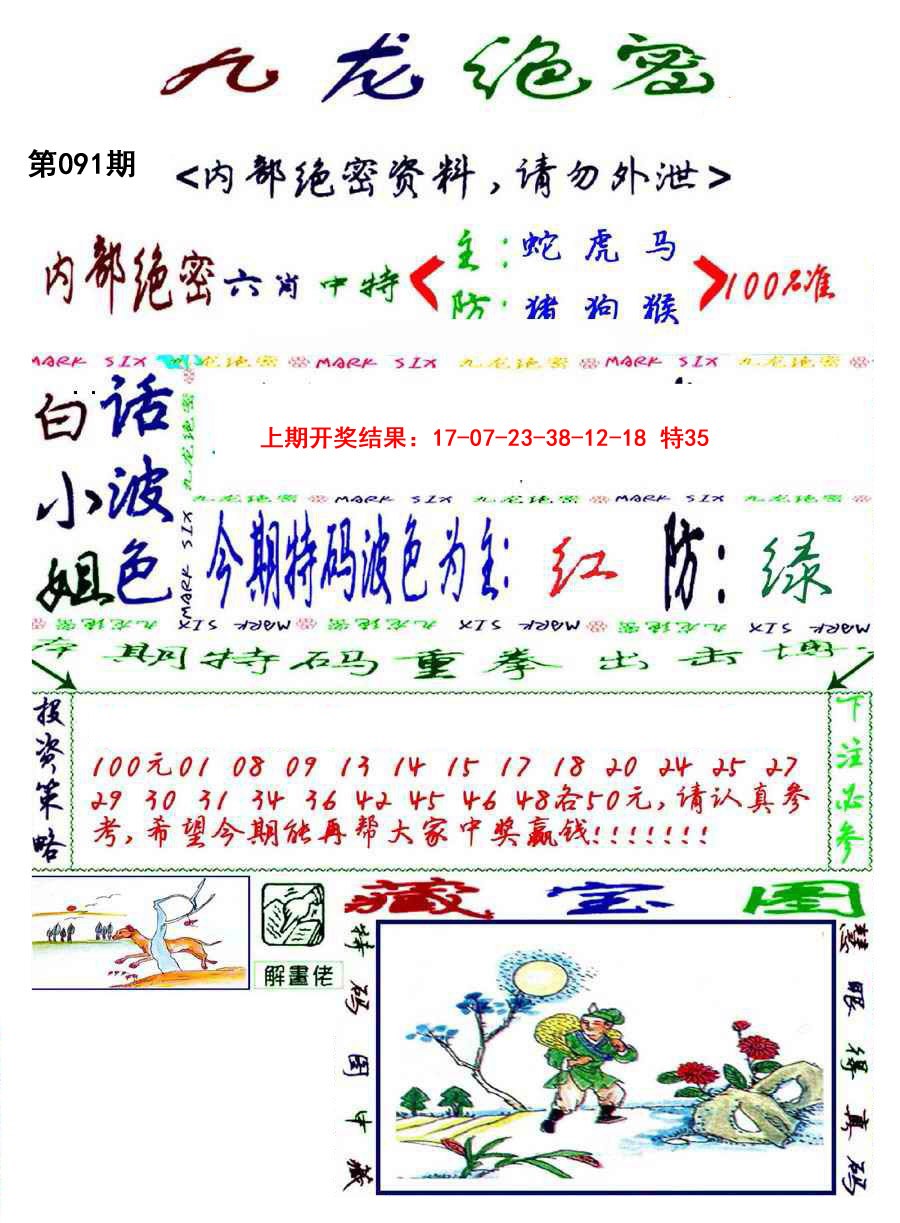 九龙绝密
第091期
<内部绝密资料,请勿外泄>
内部绝密六肖中特
主:蛇虎马
防:猪狗猴
100%准
MARK SIX 九龙绝密 MARK SIX 九龙绝密 MARK SIX 九龙绝密
白话
小波
姐色
九龙绝密
MARK SIX
上期开奖结果：17-07-23-38-12-18 特35
九龙绝密 MARK SIX 九龙绝密 MARK SIX 九龙绝密
今期特码波色为主:红 防:绿
MARK SIX 九龙绝密 MARK SIX 九龙绝密 MARK SIX 九龙绝密
期特码重拳出击
投资策略
100元01 08 09 13 14 15 17 18 20 24 25 27
29 30 31 34 36 42 45 46 48各50元,请认真参
考,希望今期能再帮大家中奖赢钱!!!!!!!
下注必参
解畫佬
藏宝图
特码图中藏
慧眼得真码